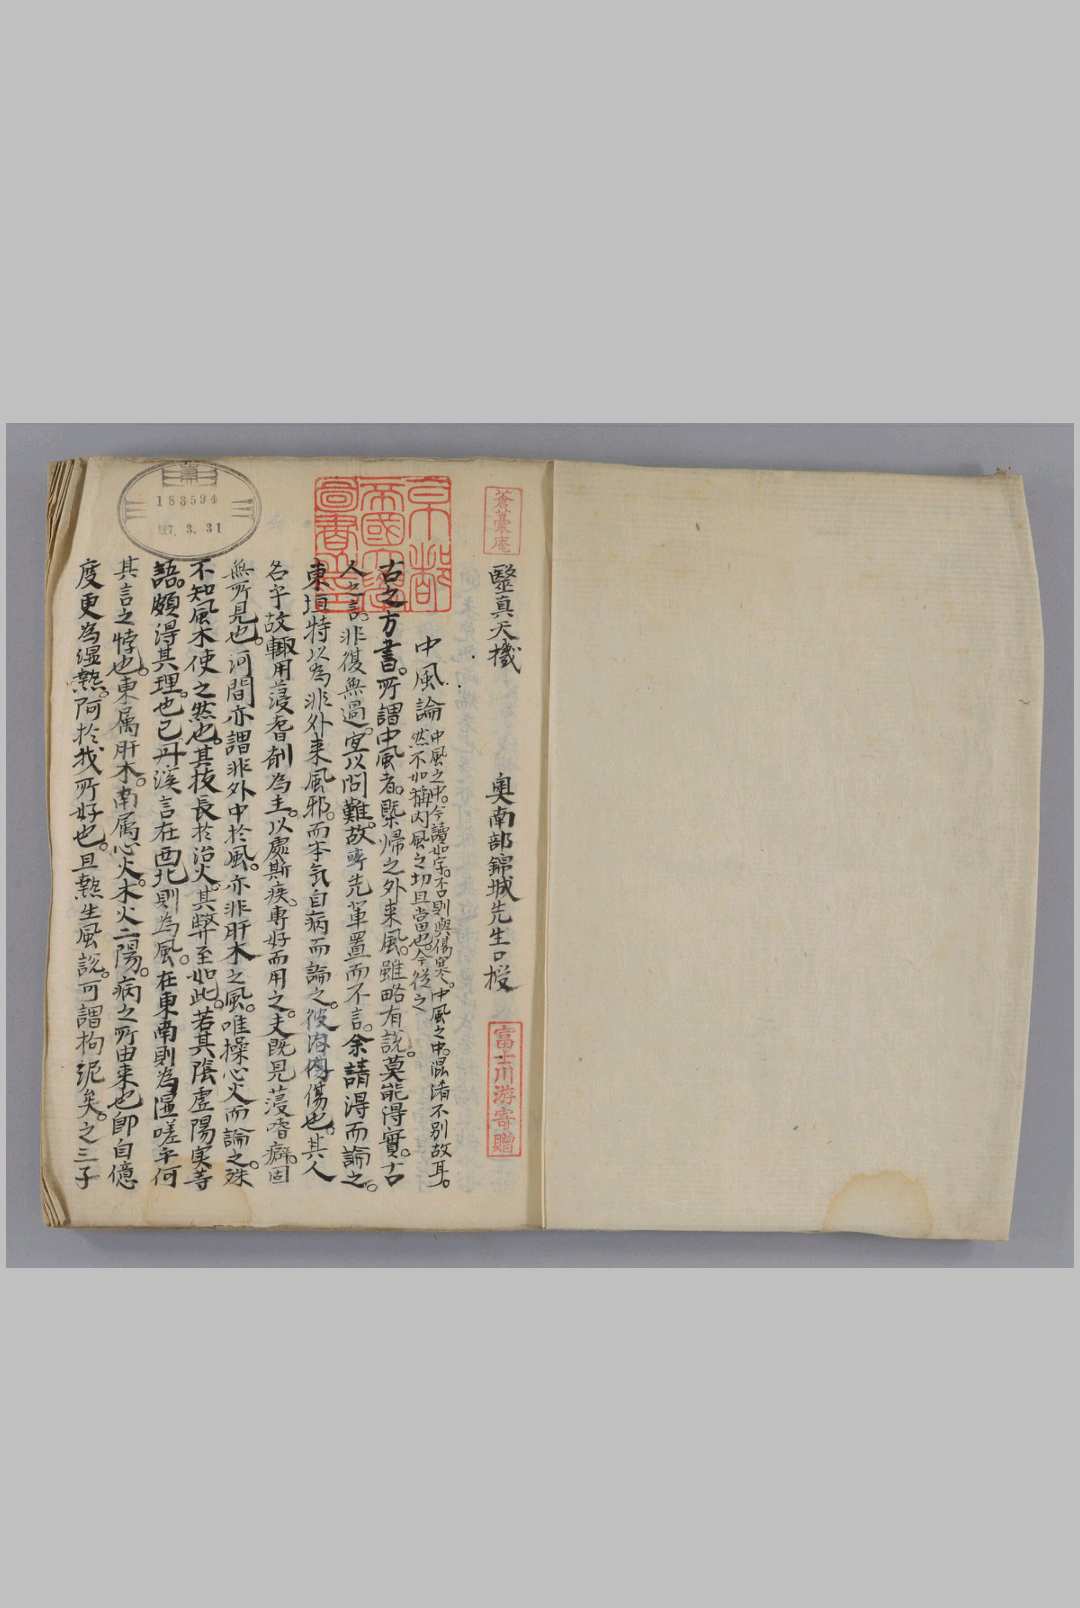 毉真天機 奥南部錦城先生口授
中風論 中風之中。今讀如字。否則與傷寒。中風之中。混淆不別故耳。
然不如稱内風之切且當也。今從之
古之方書。所謂中風者。槩帰之外来風。雖略有説。莫能得實。古
人之言。非復無過。宜以問難。故 先軰置而不言。余請得而論之。
東垣特以為非外来風邪。而本氣自病而論之。彼 傷也。其人
名乎故輙用葠耆劑為主。以處斯疾。専好而用之。夫既見葠嗜癖。固
無所見也。河間亦謂非外中於風。亦非肝木之風。唯操心火而論之。殊
不知風木使之然也。其技長於治火。其弊至如此。若其陰虚陽実等
語。頗得其理。也已丹溪言在西北則為風。在東南則為濕嗟乎何
其言之悖也。東属肝木。南属心火。木火二陽。病之所由来也即自億
度更為湿熱。阿於我所好也。且熱生風説。可謂拘泥矣。之三子
蒼蘘庵
富士川游寄贈
京都
帝國大學
圖書之印
183594
3. 31